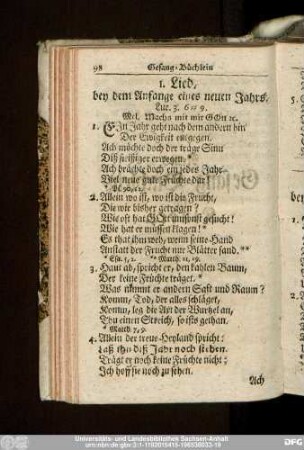 98 Gesang-Büchlein
1. Lied,
bey dem Anfange eines neuen Jahrs.
Luc. 3. 6=9.
Mel. Machs mit mir GOtt ꝛc.
1. Ein Jahr geht nach dem andern hin
Der Ewigkeit entgegen.
Ach möchte doch der träge Sinn
Diß fleißiger erwegen. *
Ach brächte doch ein jedes Jahr
Viel neue gute Früchte dar!
* Ps. 90, 12.
2. Allein wo ist, wo ist die Frucht,
Die wir bisher getragen?
Wie oft hat GOtt umsonst gesucht!
Wie hat er müssen klagen! *
Es that ihm weh, wenn seine Hand
Anstatt der Frucht nur Blätter fand. **
* Esa. 5, 2. ** Matth. 21, 19.
3. Haut ab, spricht er, den kahlen Baum,
Der keine Früchte träget. *
Was nimmt er andern Saft und Raum?
Komm, Tod, der alles schläget,
Komm, leg die Axt der Wurzel an,
Thu einen Streich, so ists gethan.
* Matth. 7, 9.
4. Allein der treue Heyland spricht:
Laß ihn diß Jahr noch stehen.
Trägt er noch keine Früchte nicht;
Ich hoff sie noch zu sehen.
Ach
Universitäts- und Landesbibliothek Sachsen-Anhalt
DFG